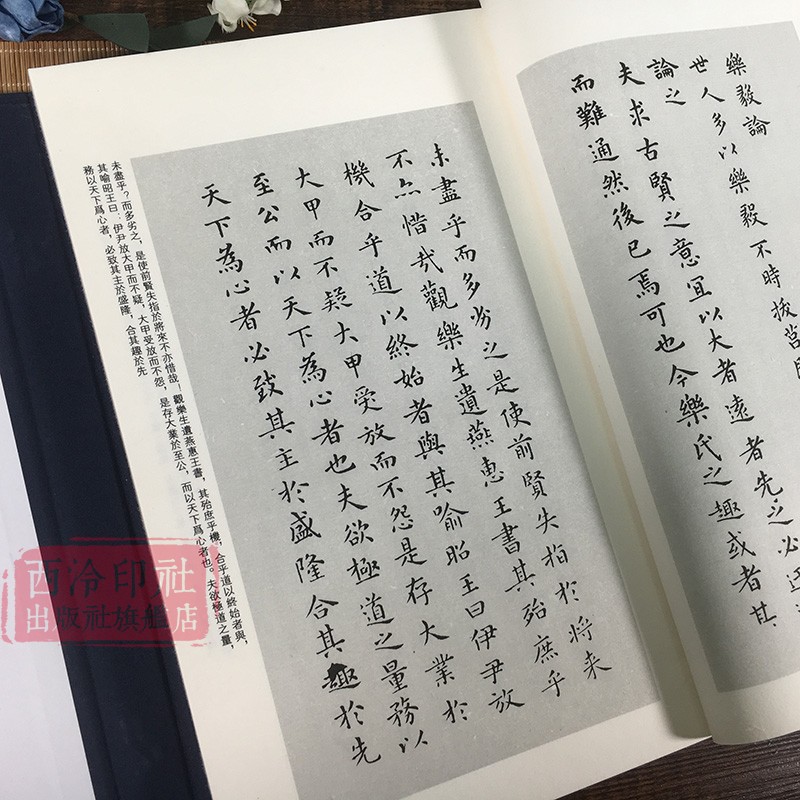 樂毅論
世人多以樂毅不時拔莒
論之
夫求古賢之意宜以大者遠者先之必迂
而難通然後已焉可也今樂氏之趣或者其
未盡乎而多劣之是使前賢失指於將來
不亦惜哉觀樂生遺燕惠王書其殆庶乎
機合乎道以終始者與其喻昭王曰伊尹放
大甲而不疑大甲受放而不怨是存大業於
至公而以天下為心者也夫欲極道之量務以
天下為心者必致其主於盛隆合其趣於先
未盡乎？而多劣之，是使前賢失指於將來不亦惜哉，觀樂生遺燕惠王書，其殆庶乎機，合乎道以終始者與，
其喻昭王曰：伊尹放大甲而不疑，大甲受放而不怨，是存大業於至公，而以天下爲心者也。夫欲極道之量，
務以天下爲心者，必致其主於盛隆，合其趣於先
西泠印社
出版社旗艦店